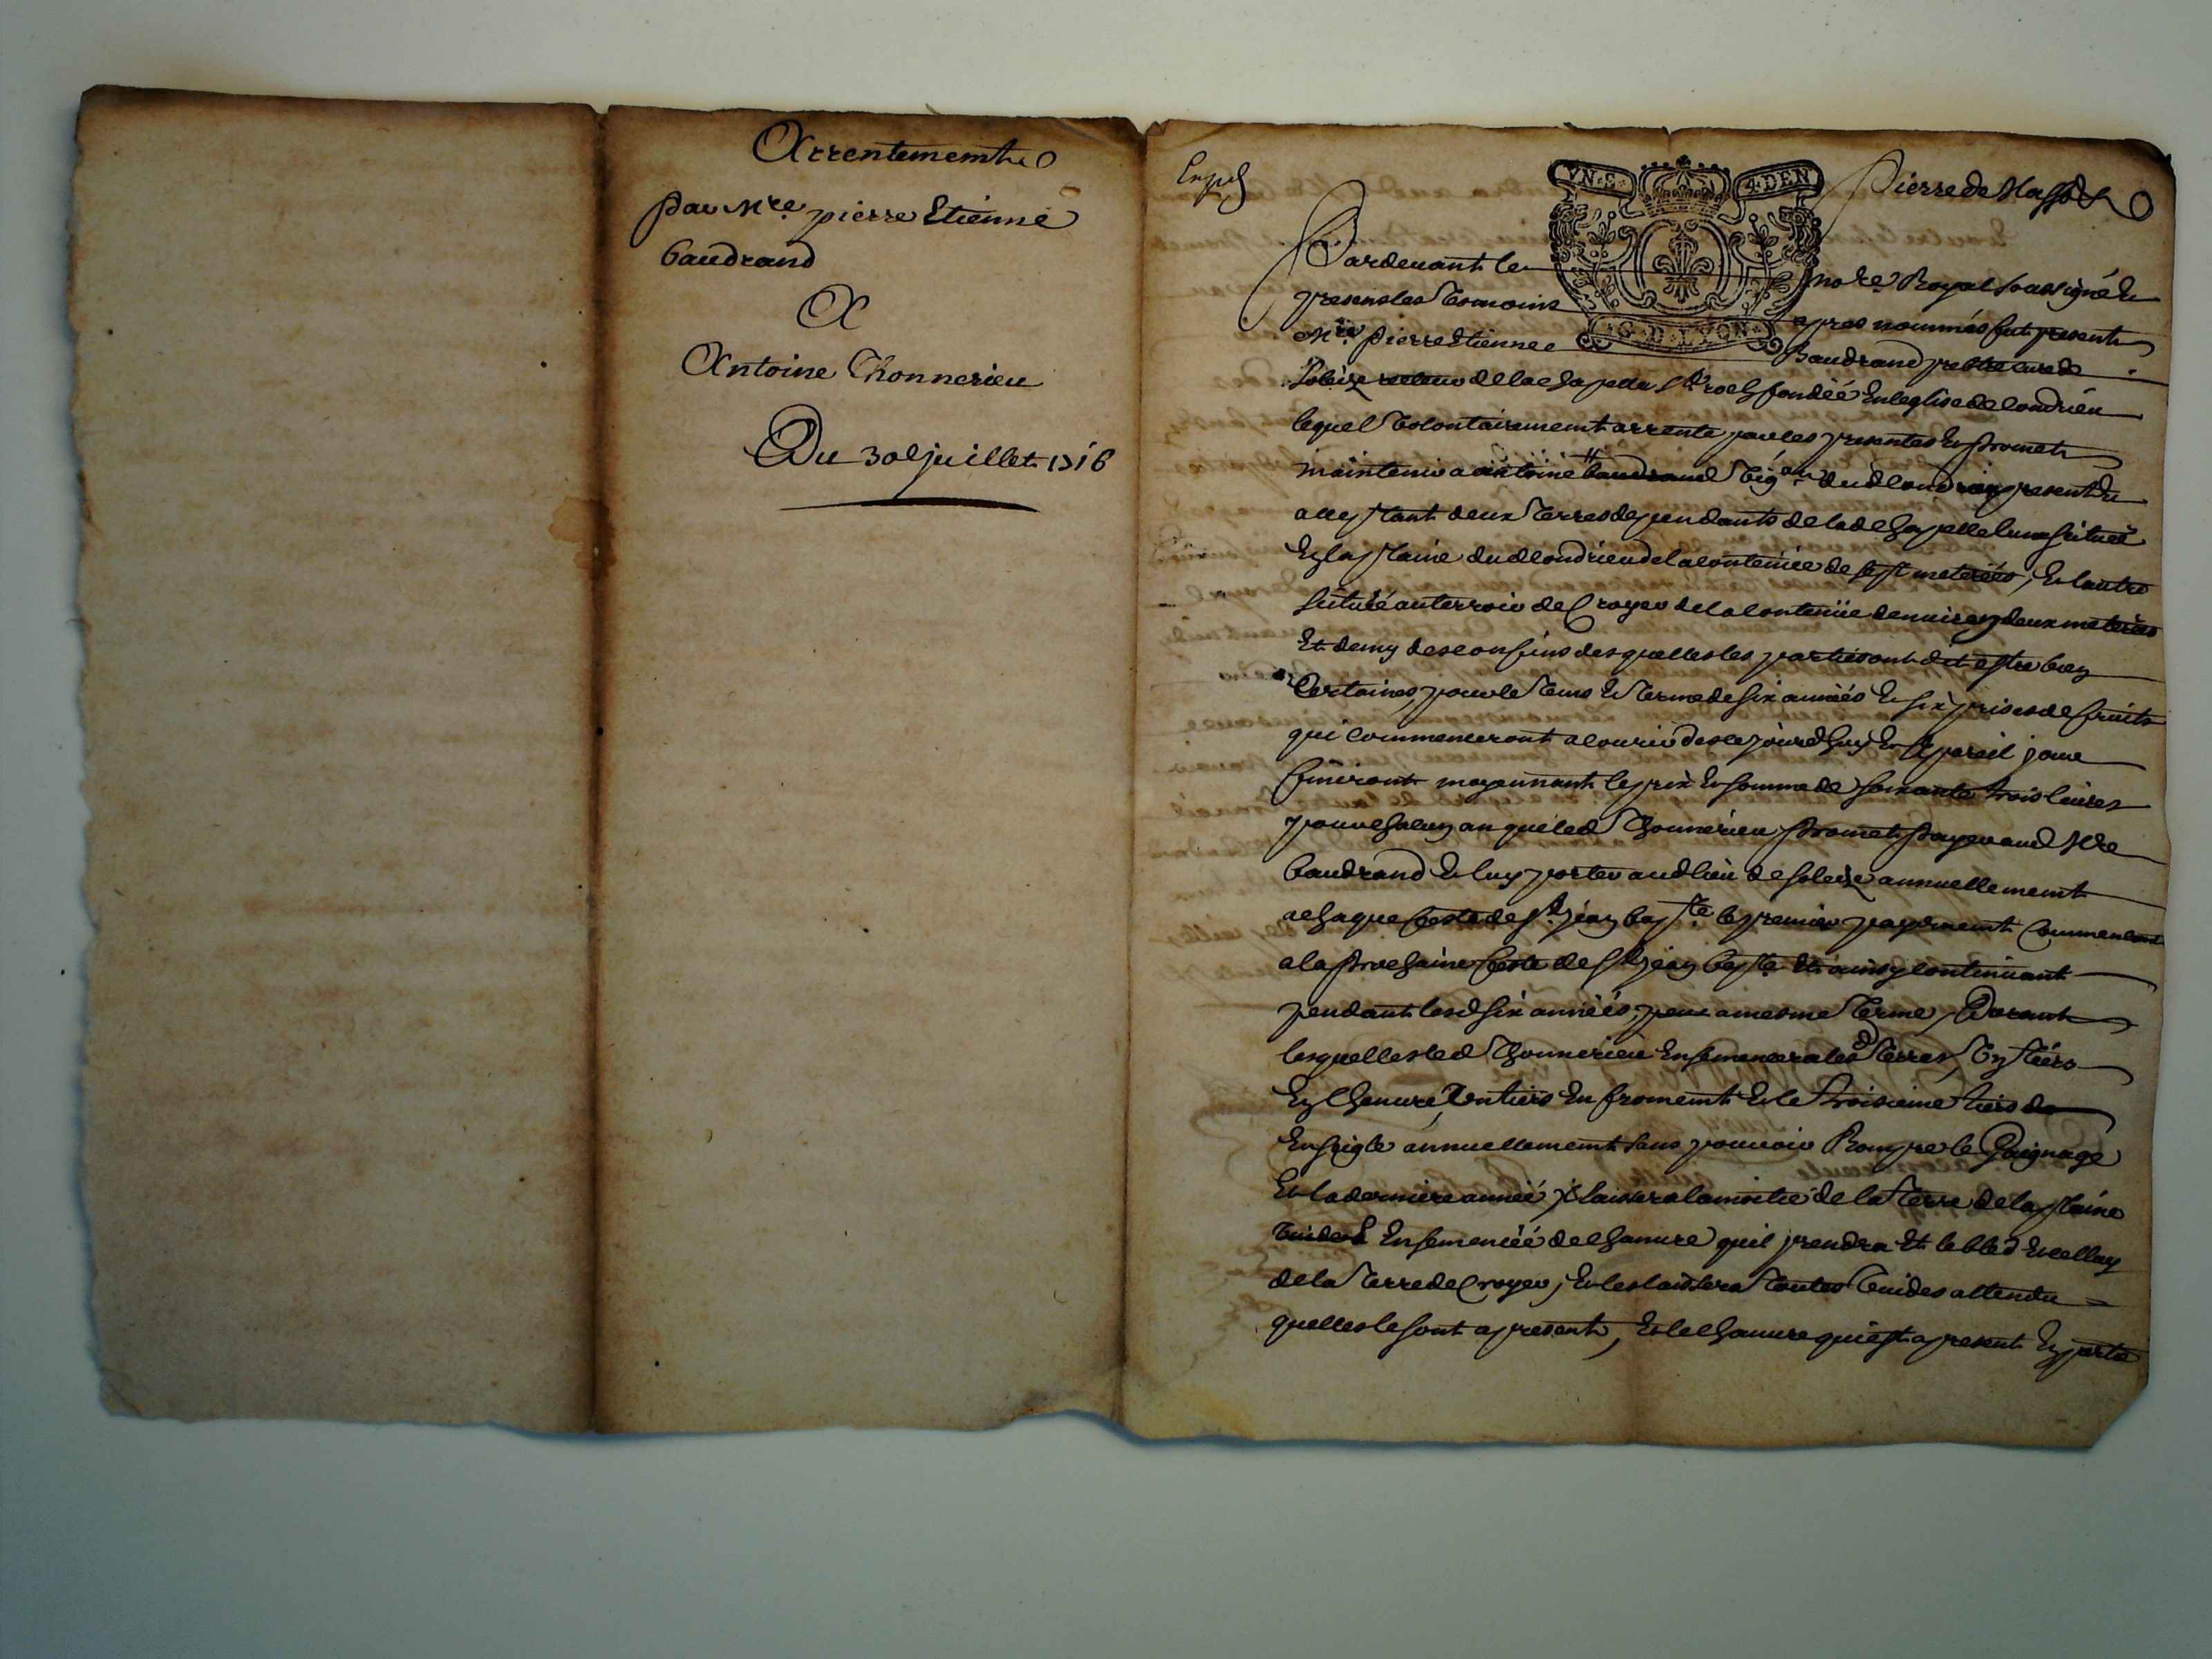 Arrentement
par Mre pierre Etienne
baudrand
A
Antoine Thonnerieu
Du 30e juillet 1716
Exped
VN. S. 4 DEN
G. D. LYON
Pierre de Masso
Pardeuant le notre Royal soussigné Et
presens les Temoins apres nommés fut present
Mre pierre Etienne Baudrand prebtre curé de
Soleize recteur de la chapelle St roch fondéé En leglise de Condrieu
lequel Volontairement arrente par les presentes Et promet
maintenir a antoine baudrand Vigon dud Condrieu present Et
acceptant deux Terres dependants de lade chapelle lune scituéé
En la plaine dud Condrieu de la contenüe de sept meterées, Et lautre
scituéé au terroir de Croyer de la contenüe denuiron deux meterées
Et demy des confins desquelles les parties ont dit estre bien
Certaines, pour le Tems Et Terme de six annéés Et six prises de fruits
qui commenceront a courir des ce jourdhuy Et a pareil jour
finiront moyennant le prix Et somme de soixante trois liures
pour chacun an que led Thonnerieu promet payer aud Mre
baudrand Et luy porter aud lieu de soleize annuellement
a chaque feste de St jean bapte le premier payement Commencant
a la prochaine feste de St jean bapte Et ainsy continuant
pendant lesd six annéés, a mesme Terme, Durant
lesquelles led Thonnerieu Ensemencera lesd Terres, Vn tiers
En Chenure, Vn tiers En froment Et le troisieme tiers
En seigle annuellement sans pouuoir Rompre le Gaignage
Et la derniere annéé il laissera la moitié de la Terre de la plaine
vuide Ensemencéé de chanure quil prendra Et le bled
de la Terre de Croyer, Et les laissera Toutes Vuides attendu
quelles le sont a present, Et le chanure qui est a present En partie